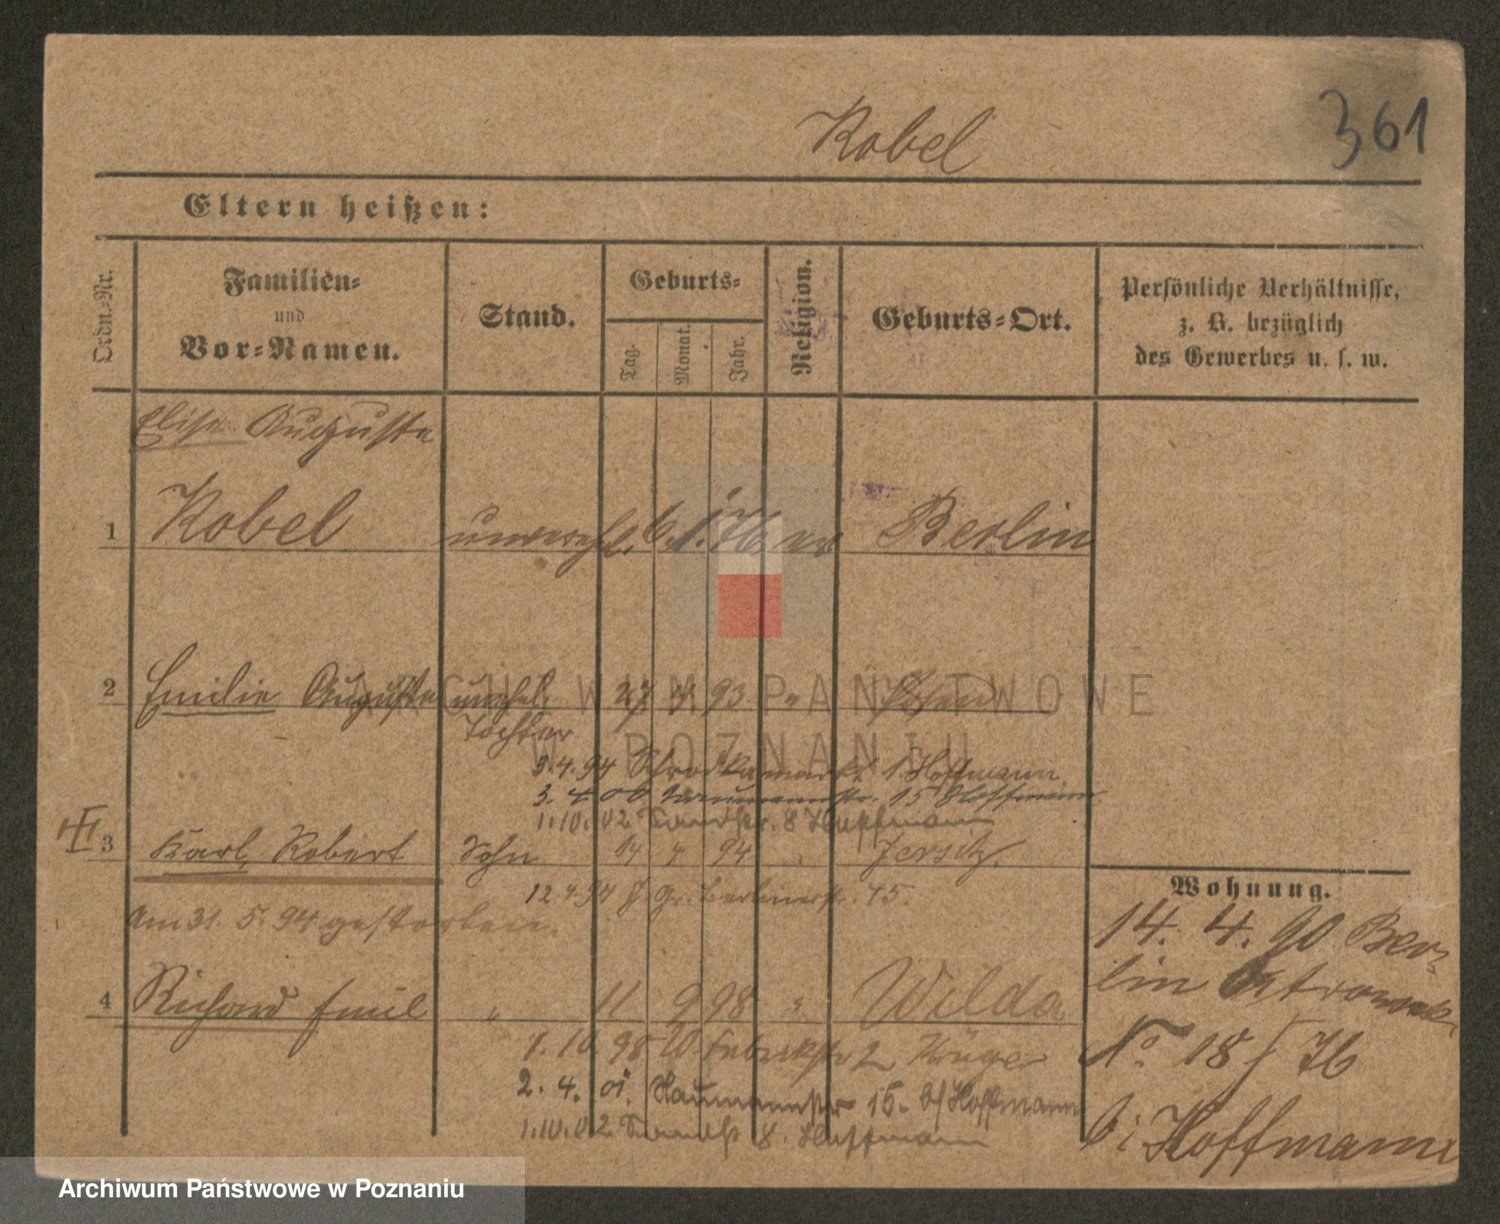 361
Kobel
Eltern heißen:
Ordn.-Nr.
Familien-
und
Vor-Namen.
Stand.
Geburts-
Tag.
Monat.
Jahr.
Religion.
Geburts-Ort.
Persönliche Verhältnisse,
z. B. bezüglich
des Gewerbes u. s. w.
Elise Auguste
1 Kobel unverehl. 6. 1. 76 ev Berlin
2 Emilie Auguste unehel. 27 4 93 " Posen
Tochter
ARCHIWUM PAŃSTWOWE
W POZNANIU
3. 4. 94 Schrodkamarkt 1 Hoffmann
3. 4 00 Naumannstr. 15 Hoffmann
1. 10. 02 8 Hoffmann
3 Karl Robert Sohn 14 4 94 " Jersitz
12. 4. 94 J. Gr. Berlinerstr. 45.
Am 31. 5. 94 gestorben.
Wohnung.
14. 4. 90 Ber-
lin Ostrowek
No 18 / 76
bei Hoffmann
4 Richard Emil " 11 9 98 " Wilda
1. 10. 98 W. Fabrikstr 2 Krüger
2. 4. 01. Naumannstr 15. b/ Hoffmann
1. 10. 02 8. Hoffmann
Archiwum Państwowe w Poznaniu